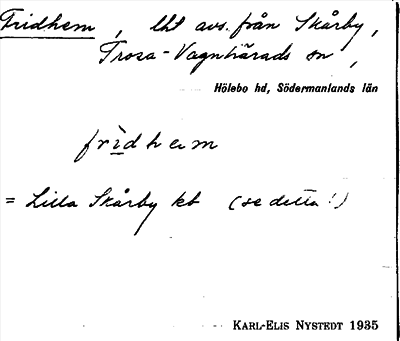 Fridhem, lht avs. från Skårby,
Trosa-Vagnhärads sn,
Hölebo hd, Södermanlands län
frìdhem
= Lilla Skårby kt (se detta!)
KARL-ELIS NYSTEDT 1935